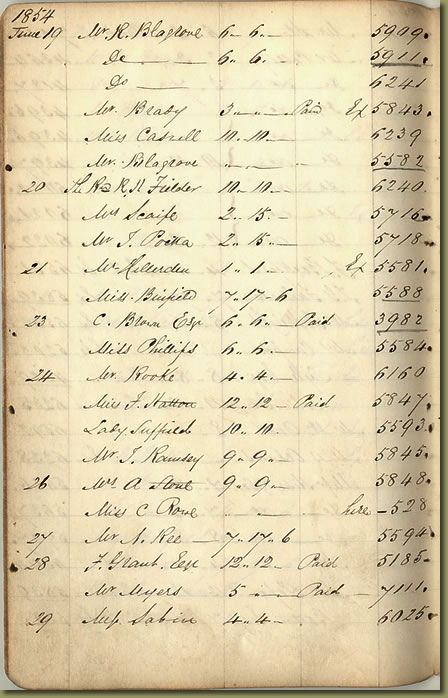 1854
June 19 Mr. R. Blagrove 6 " 6 " — 5909.
Do — — 6 " 6. 5911.
Do — — 6241
Mr. Brady 3 " — " — Paid Ex 5843.
Miss Cassell 10 " 10 " — 6239
Mr. Blagrove " — " — " 5582
20 R. N. Fielder 10 " 10 " — 6240.
Mrs Scaife 2 " 15 " — 5716
Mr J. 2 " 15 " — 5718
21 1 " 1 " — Ex 5581.
Miss Binfield 7 " 17 " 6 5588
23 C. Brown Esqr 6 " 6 " — Paid 3982
Miss Phillips 6 " 6 " 5584
24 Mr. Rooke 4 " 4 " — 6160
Miss F. Hatton 12 " 12 — Paid 5847.
Lady Suffield 10 " 10 " 5593.
Mr J. Ramsey 9 " 9 " — 5845.
26 Mrs A Stone 9 " 9 " — 5848.
Miss C Rowe " — " here — 528
27 Mr. A. Kee — 7 " 17 " 6 5594
28 F. Grant. Esqr 12 " 12 — Paid 5185 —
Mr Myers 5 " — " — Paid — 7111.
29 Miss Sabin 4 " 4 " — 6025